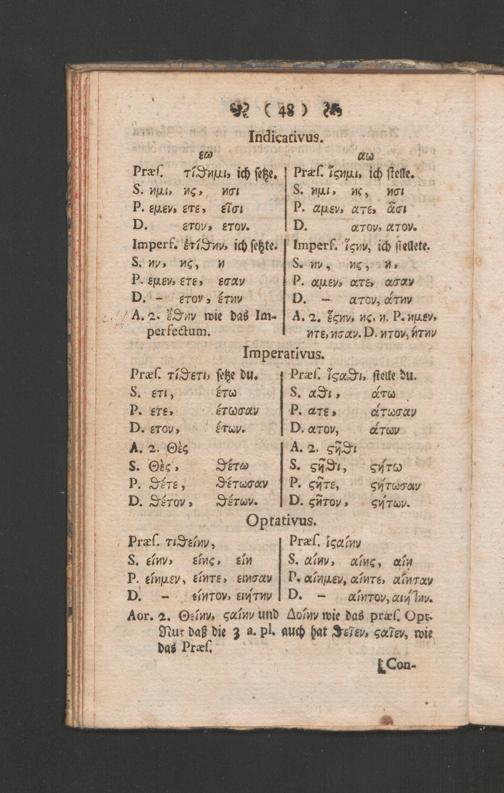 ( 48 )
Indicativus.
εω αω
Præſ. τίθημι, ich ſetze. Præſ. ἵςημι, ich ſtelle.
S. ημι, ης, ησι S. ημι, ης, ησι
P. εμεν, ετε, εῖσι P. αμεν, ατε, ᾶσι
D. ετον, ετον. D. ατον, ατον.
Imperf. ἐτίθην, ich ſetzte. Imperf. ἵςην, ich ſtellete.
S. ην, ης, η S. ην, ης, η,
P. εμεν, ετε, εσαν P. αμεν, ατε, ασαν
D. – ετον, έτην D. – ατον, άτην
A. 2. ἔθην wie das Im- A. 2. ἔςην, ης, η. P. ημεν,
perfectum. ητε, ησαν. D. ητον, ήτην
Imperativus.
Præſ. τίθετι, ſetze du. Præſ. ἵςαθι, ſtelle du.
S. ετι, έτω S. αθι, άτω
P. ετε, έτωσαν P. ατε, άτωσαν
D. ετον, έτων. D. ατον, άτων
A. 2. Θὲς A. 2. ςῆθι
S. Θὲς, θέτω S. ςῆθι, ςήτω
P. θέτε, θέτωσαν P. ςῆτε, ςήτωσαν
D. θέτον, θέτων. D. ςῆτον, ςήτων.
Optativus.
Præſ. τιθείην, Præſ. ἱςαίην
S. είην, είης, είη S. αίην, αίης, αίη
P. είημεν, είητε, είησαν P. αίημεν, αίητε, αίησαν
D. – είητον, ειήτην D. – αίητον, αιήτην.
Aor. 2. Θείην, ςαίην und Δοίην wie das præſ. Opt.
Nur daß die 3 a. pl. auch hat θεῖεν, ςαῖεν, wie
das Præſ.
Con-